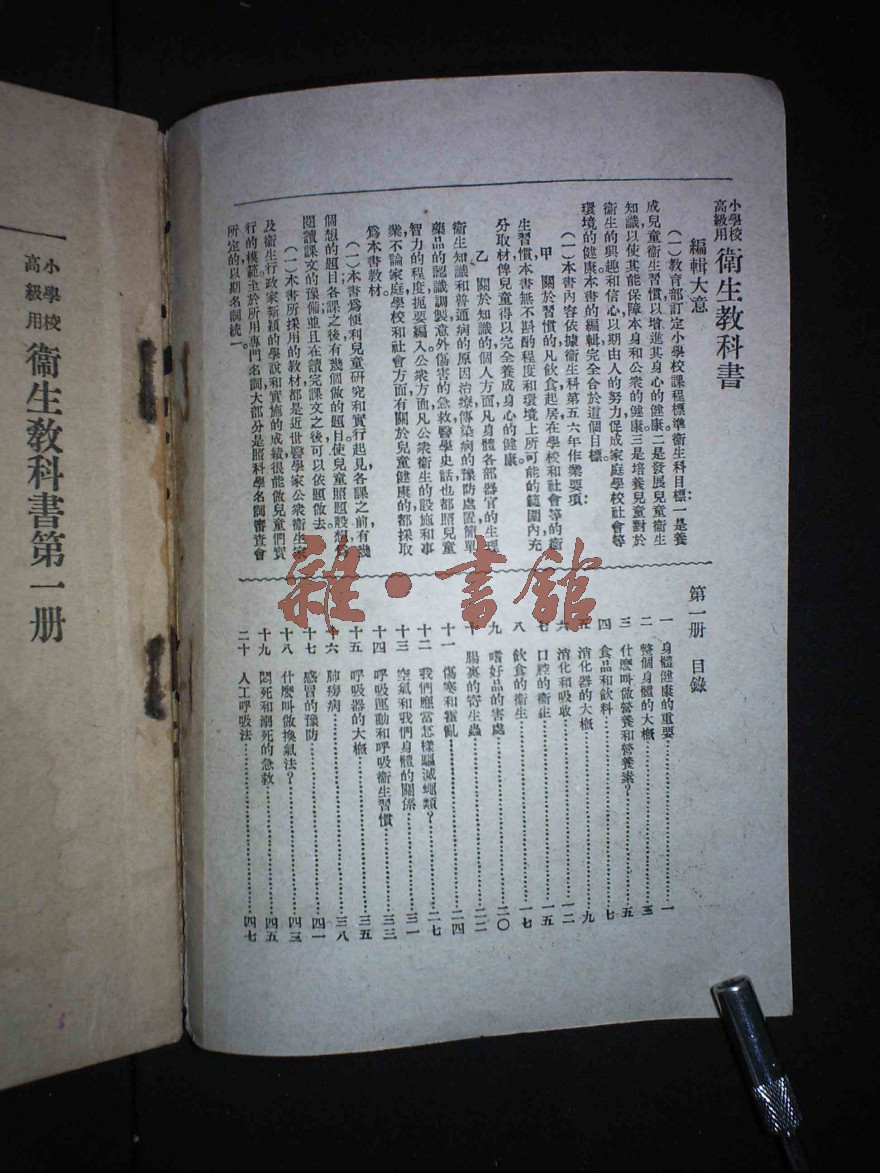 小學校高級用
衞生教科書
編輯大意
(一)教育部訂定小學校課程標準衞生科目標:一是養
成兒童衞生習慣以增進其身心的健康二是發展兒童衞生
知識以使其能保障本身和公衆的健康三是培養兒童對於
衞生的興趣和信心以期由人的努力促成家庭學校社會等
環境的健康本書的編輯完全合於這個目標。
(一)本書內容依據衞生科第五六年作業要項:
甲 關於習慣的凡飲食起居在學校和社會等的衞
生習慣本書無不斟酌程度和環境上所可能的範圍內充
分取材俾兒童得以完全養成身心的健康。
乙 關於知識的個人方面凡身體各部器官的生理
衞生知識和普通病的原因治療傳染病的豫防處置簡單
藥品的認識調製意外傷害的急救醫學史話也都照兒童
智力的程度扼要編入公衆方面凡公衆衞生的設施和事
業不論家庭學校和社會方面有關於兒童健康的都採取
爲本書教材。
(一)本書爲便利兒童研究和實行起見,各課之前有幾
個想的題目各課之後有幾個做的題目,使兒童照題設想爲
閱讀課文的豫備並且在讀完課文之後可以依題做去。
(一)本書所採用的教材都是近世醫學家公衆衞生家
及衞生行政家新穎的學說和實施的成績很能做兒童們實
行的模範。至於所用專門名詞大部分是照科學名詞審查會
所定的以期名詞統一。
第一册 目錄
一 身體健康的重要 一
二 整個身體的大概 三
三 什麼叫做營養和營養素? 五
四 食品和飲料 七
五 消化器的大概 九
六 消化和吸收 一二
七 口腔的衞生 一五
八 飲食的衞生 一七
九 嗜好品的害處 二〇
十 腸裏的寄生蟲 二二
十一 傷寒和霍亂 二四
十二 我們應當怎樣驅滅蠅類? 二七
十三 空氣和我們身體的關係 三一
十四 呼吸運動和呼吸衞生習慣 三三
十五 呼吸器的大概 三五
十六 肺癆病 三八
十七 感冒的豫防 四一
十八 什麼叫做換氣法? 四三
十九 悶死和溺死的急救 四五
二十 人工呼吸法 四七
小學校高級用
衞生教科書第一册
雜·書館